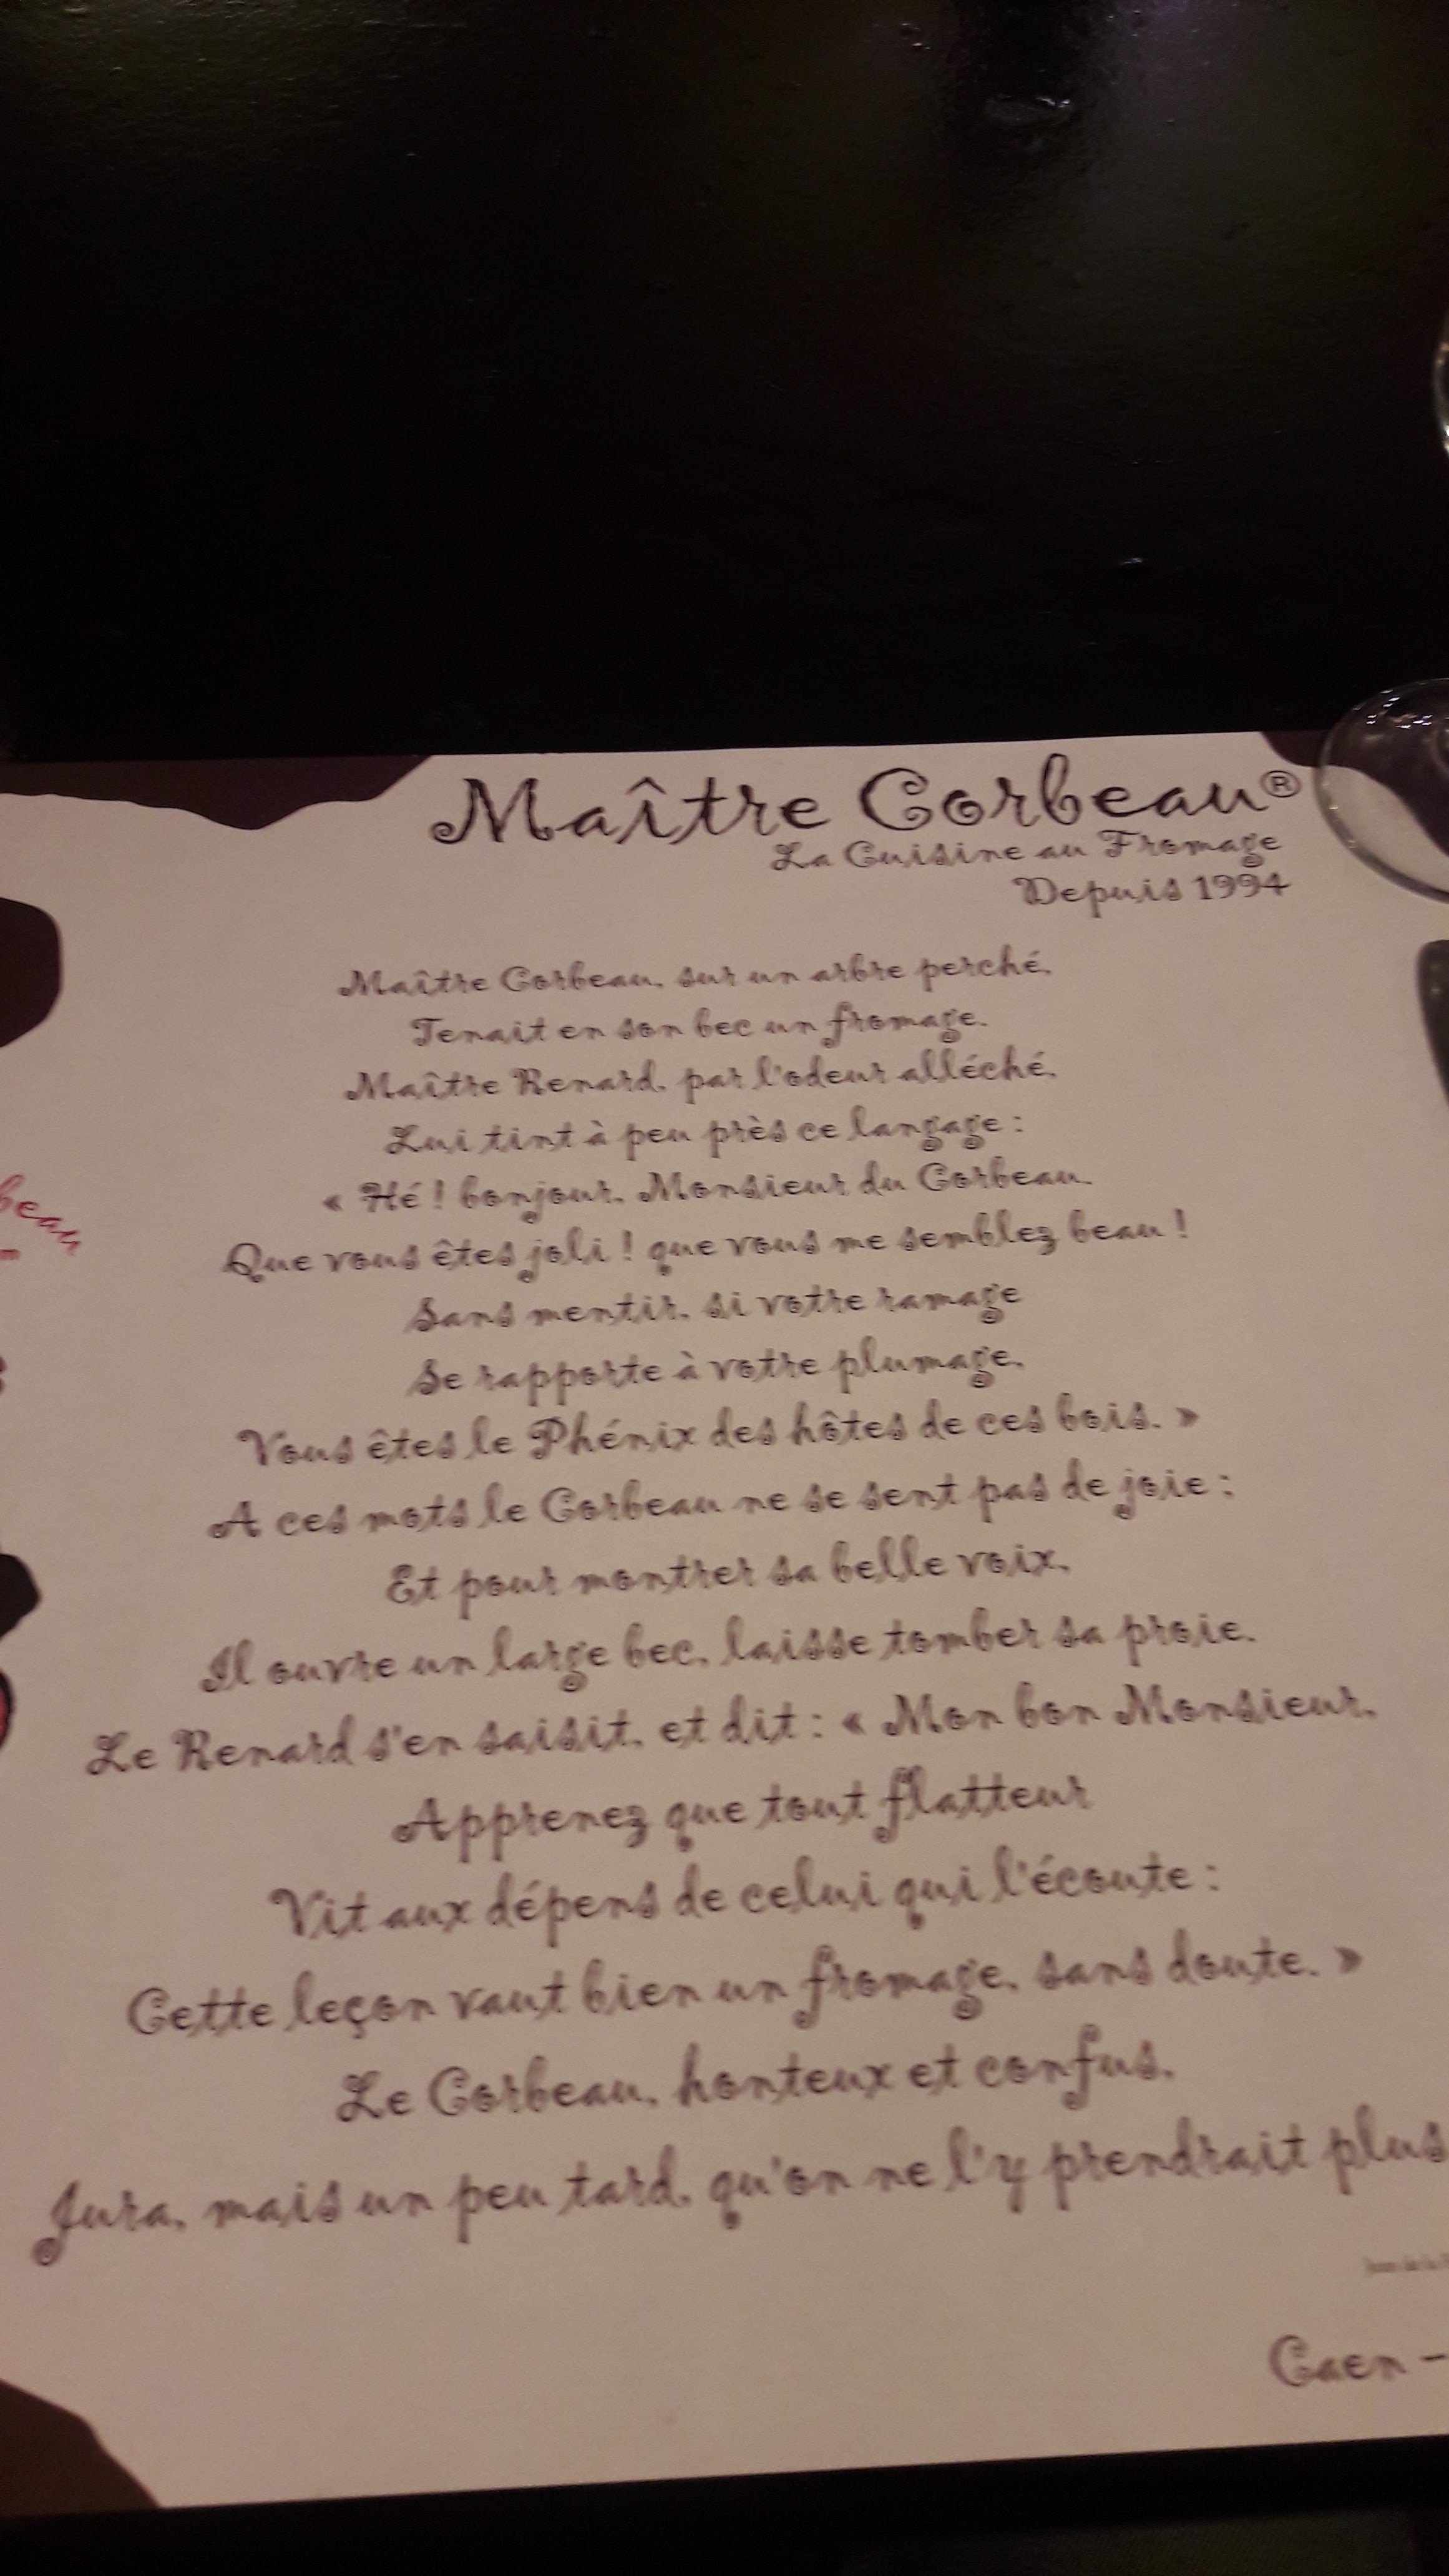 Maître Corbeau®
La Cuisine au Fromage
Depuis 1994
Maître Corbeau, sur un arbre perché,
Tenait en son bec un fromage.
Maître Renard, par l'odeur alléché,
Lui tint à peu près ce langage :
« Hé ! bonjour, Monsieur du Corbeau.
Que vous êtes joli ! que vous me semblez beau !
Sans mentir, si votre ramage
Se rapporte à votre plumage,
Vous êtes le Phénix des hôtes de ces bois. »
A ces mots le Corbeau ne se sent pas de joie ;
Et pour montrer sa belle voix,
Il ouvre un large bec, laisse tomber sa proie.
Le Renard s'en saisit, et dit : « Mon bon Monsieur,
Apprenez que tout flatteur
Vit aux dépens de celui qui l'écoute :
Cette leçon vaut bien un fromage, sans doute. »
Le Corbeau, honteux et confus,
Jura, mais un peu tard, qu'on ne l'y prendrait plus
Jean de la
Caen -
beau